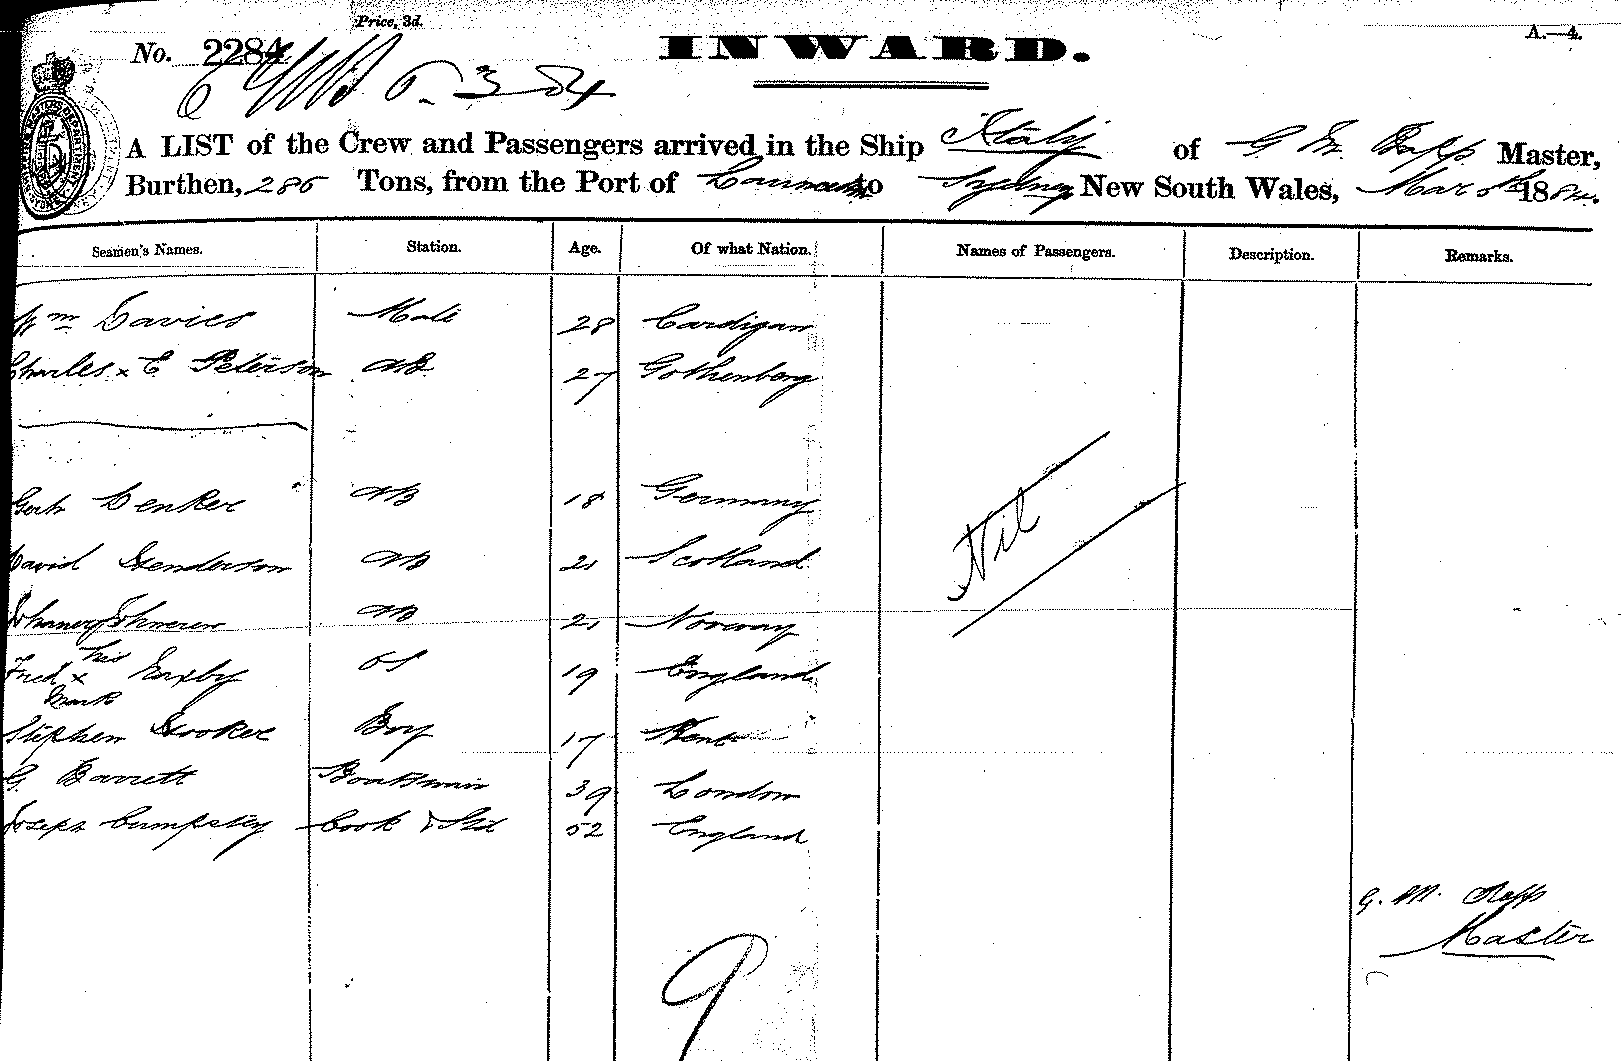 Price, 3d.
No. 2284 INWARD. A.—4.
6.3.84
A LIST of the Crew and Passengers arrived in the Ship Italy of G. M. Master,
Burthen, 286 Tons, from the Port of to Sydney New South Wales, Mar 5th 1884.
Seamen's Names. Station. Age. Of what Nation. Names of Passengers. Description. Remarks.
Wm Davies Mate 28 Cardigan
Charles x E Peterson AB 27 Gothenberg
Denker AB 18 Germany
Nil
David Henderson AB 21 Scotland
AB 21 Norway
his
Fred x OS 19 England
Mark
Stephen Hooker Boy 17 Kent
G. Barrett Boatswain 39 London
Joseph Cumpsty Cook & Std 52 England
G. M.
Master
9